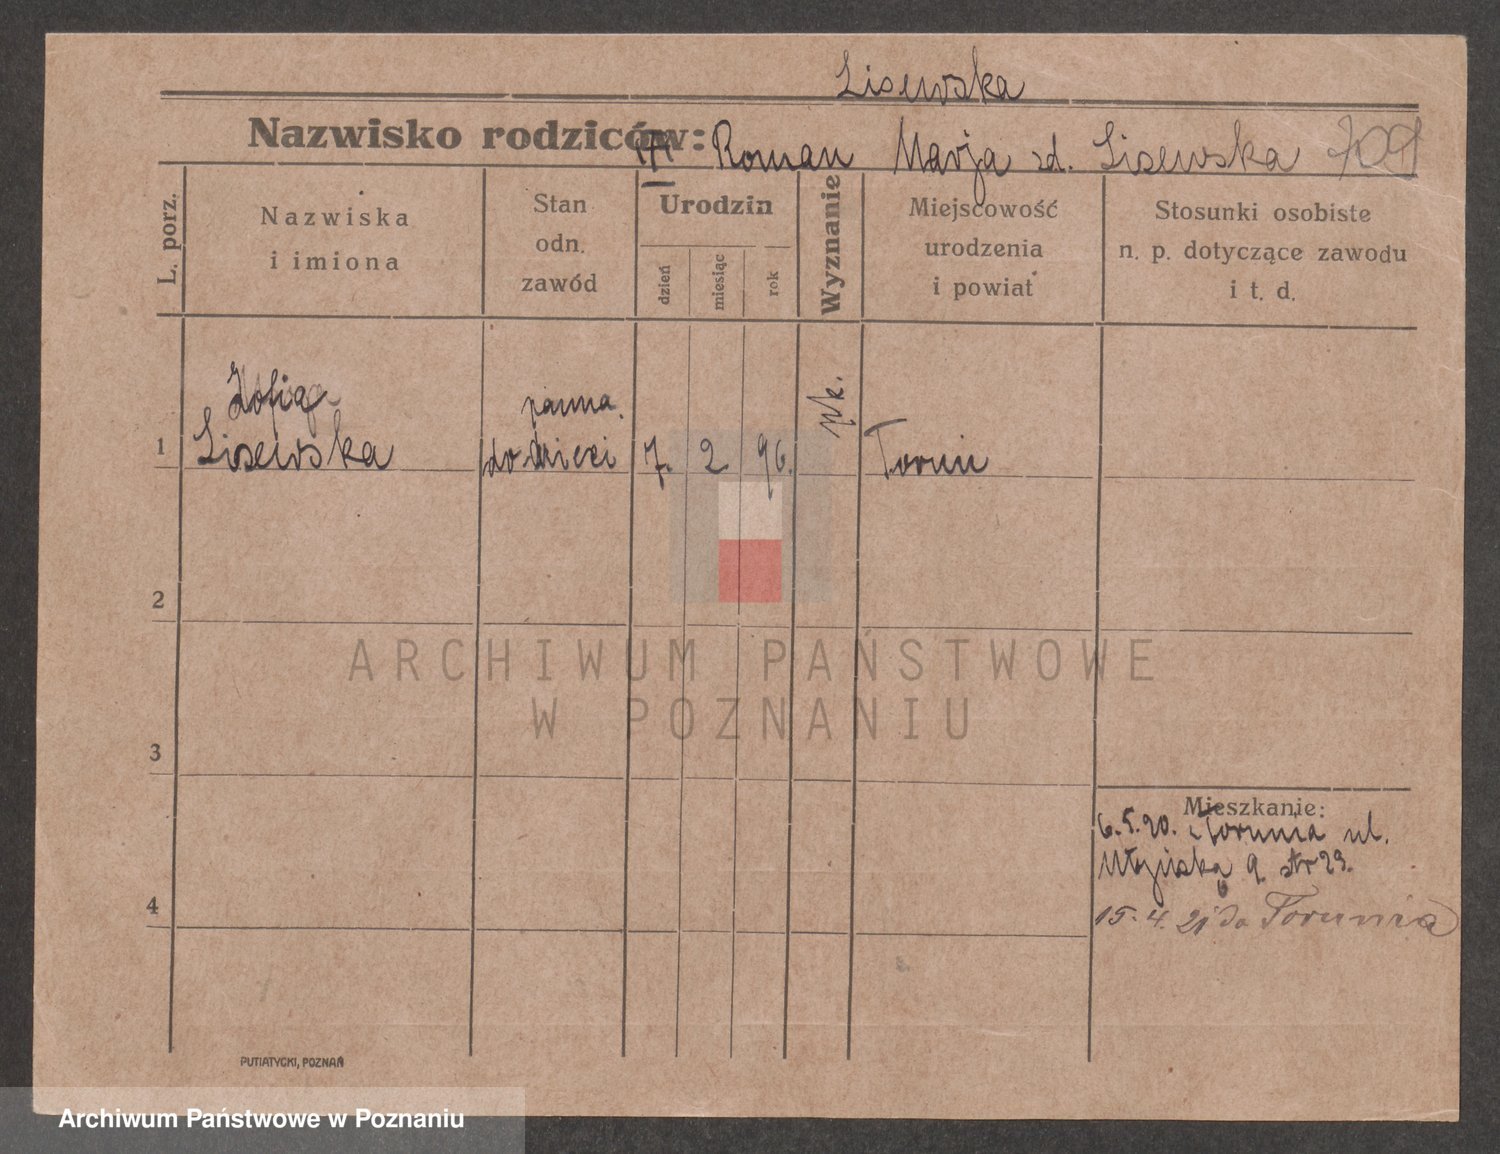 Lisewska
Nazwisko rodziców: Roman Marja zd. Lisewska
L. porz.
Nazwiska
i imiona
Stan
odn.
zawód
Urodzin
dzień
miesiąc
rok
Wyznanie
Miejscowość
urodzenia
i powiat
Stosunki osobiste
n. p. dotyczące zawodu
i t. d.
1
Zofia
Lisewska
panna.
do dzieci
7.
2
96.
rk.
Toruń
2
3
4
Mieszkanie:
6.5.20. z Torunia ul.
9. str 23.
15.4.21 do Torunia
PUTIATYCKI, POZNAŃ
ARCHIWUM PAŃSTWOWE
W POZNANIU
Archiwum Państwowe w Poznaniu